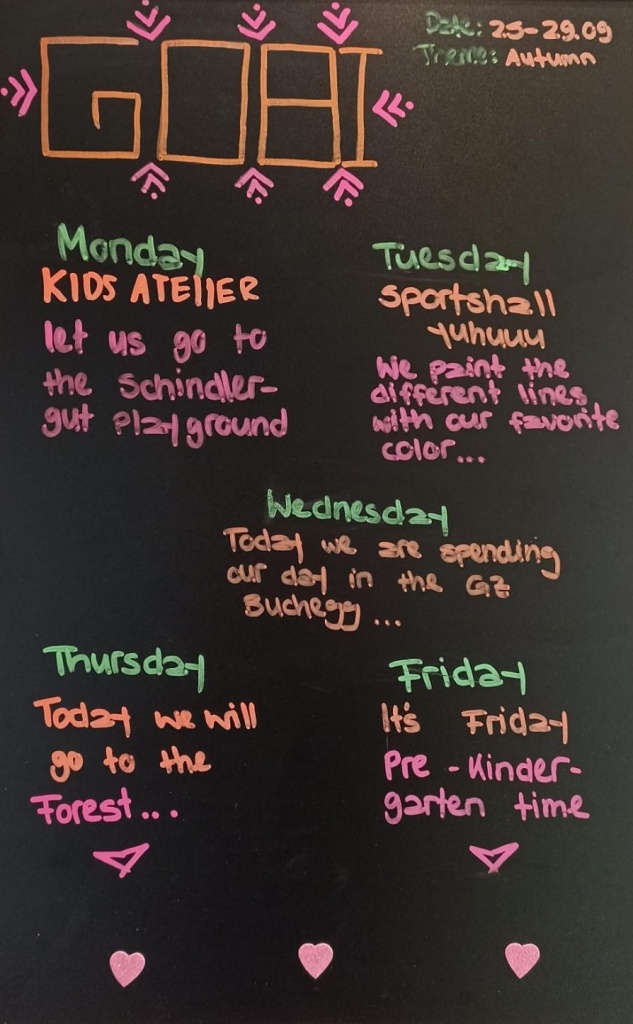 GOBI
Date: 25-29.09
Theme: Autumn
Monday
KIDS ATELIER
let us go to
the Schindler-
gut Playground
Tuesday
Sportshall
yuhuuu
We paint the
different lines
with our favorite
color...
Wednesday
Today we are spending
our day in the GZ
Buchegg...
Thursday
Today we will
go to the
Forest...
Friday
It's Friday
Pre-Kinder-
garten time